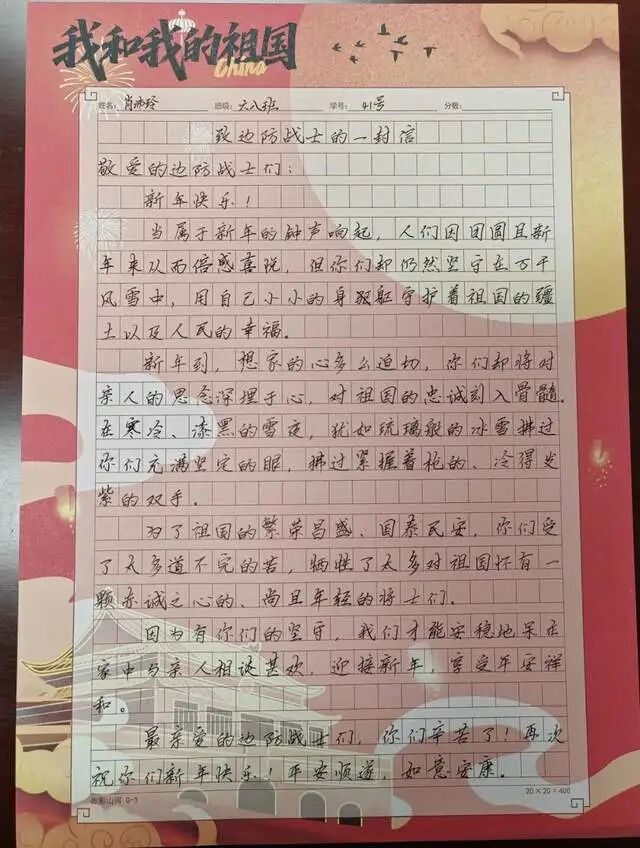 我和我的祖国
China
姓名: 肖沛 班级: 六八班 学号: 41号 分数:
致边防战士的一封信
敬爱的边防战士们：
新年快乐！
当属于新年的钟声响起，人们因团圆且新
年来以而倍感喜悦，但你们却仍然坚守在万千
风雪中，用自己小小的身躯守护着祖国的疆
土以及人民的幸福。
新年到，想家的心多么迫切，你们却将对
亲人的思念深埋于心，对祖国的忠诚刻入骨髓。
在寒冷、漆黑的雪夜，犹如琉璃般的冰雪拂过
你们充满坚定的眼，拂过紧握着枪的、冷得发
紫的双手。
为了祖国的繁荣昌盛、国泰民安，你们受
了太多道不完的苦，牺牲了太多对祖国怀有一
颗赤诚之心的、尚且年轻的将士们。
因为有你们的坚守，我们才能安稳地呆在
家中与亲人相谈甚欢，迎接新年，享受平安祥
和。
最亲爱的边防战士们，你们辛苦了！再次
祝你们新年快乐！平安顺遂，如意安康。
20×20=400